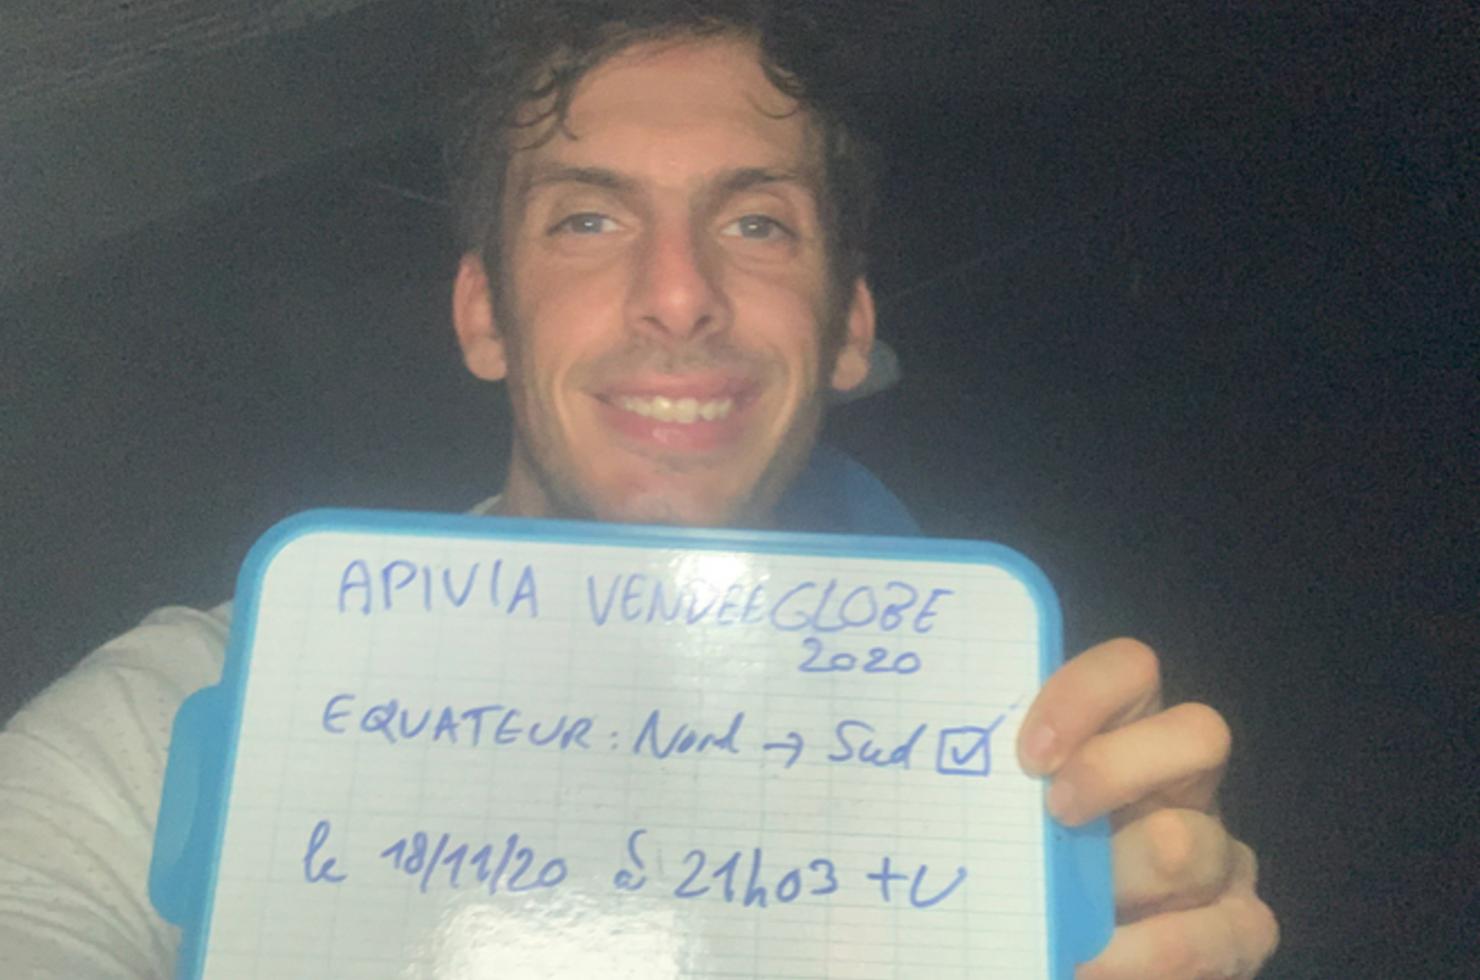 APIVIA VENDEE GLOBE
2020
EQUATEUR : Nord → Sud ☑
le 18/11/20 à 21h03 TU